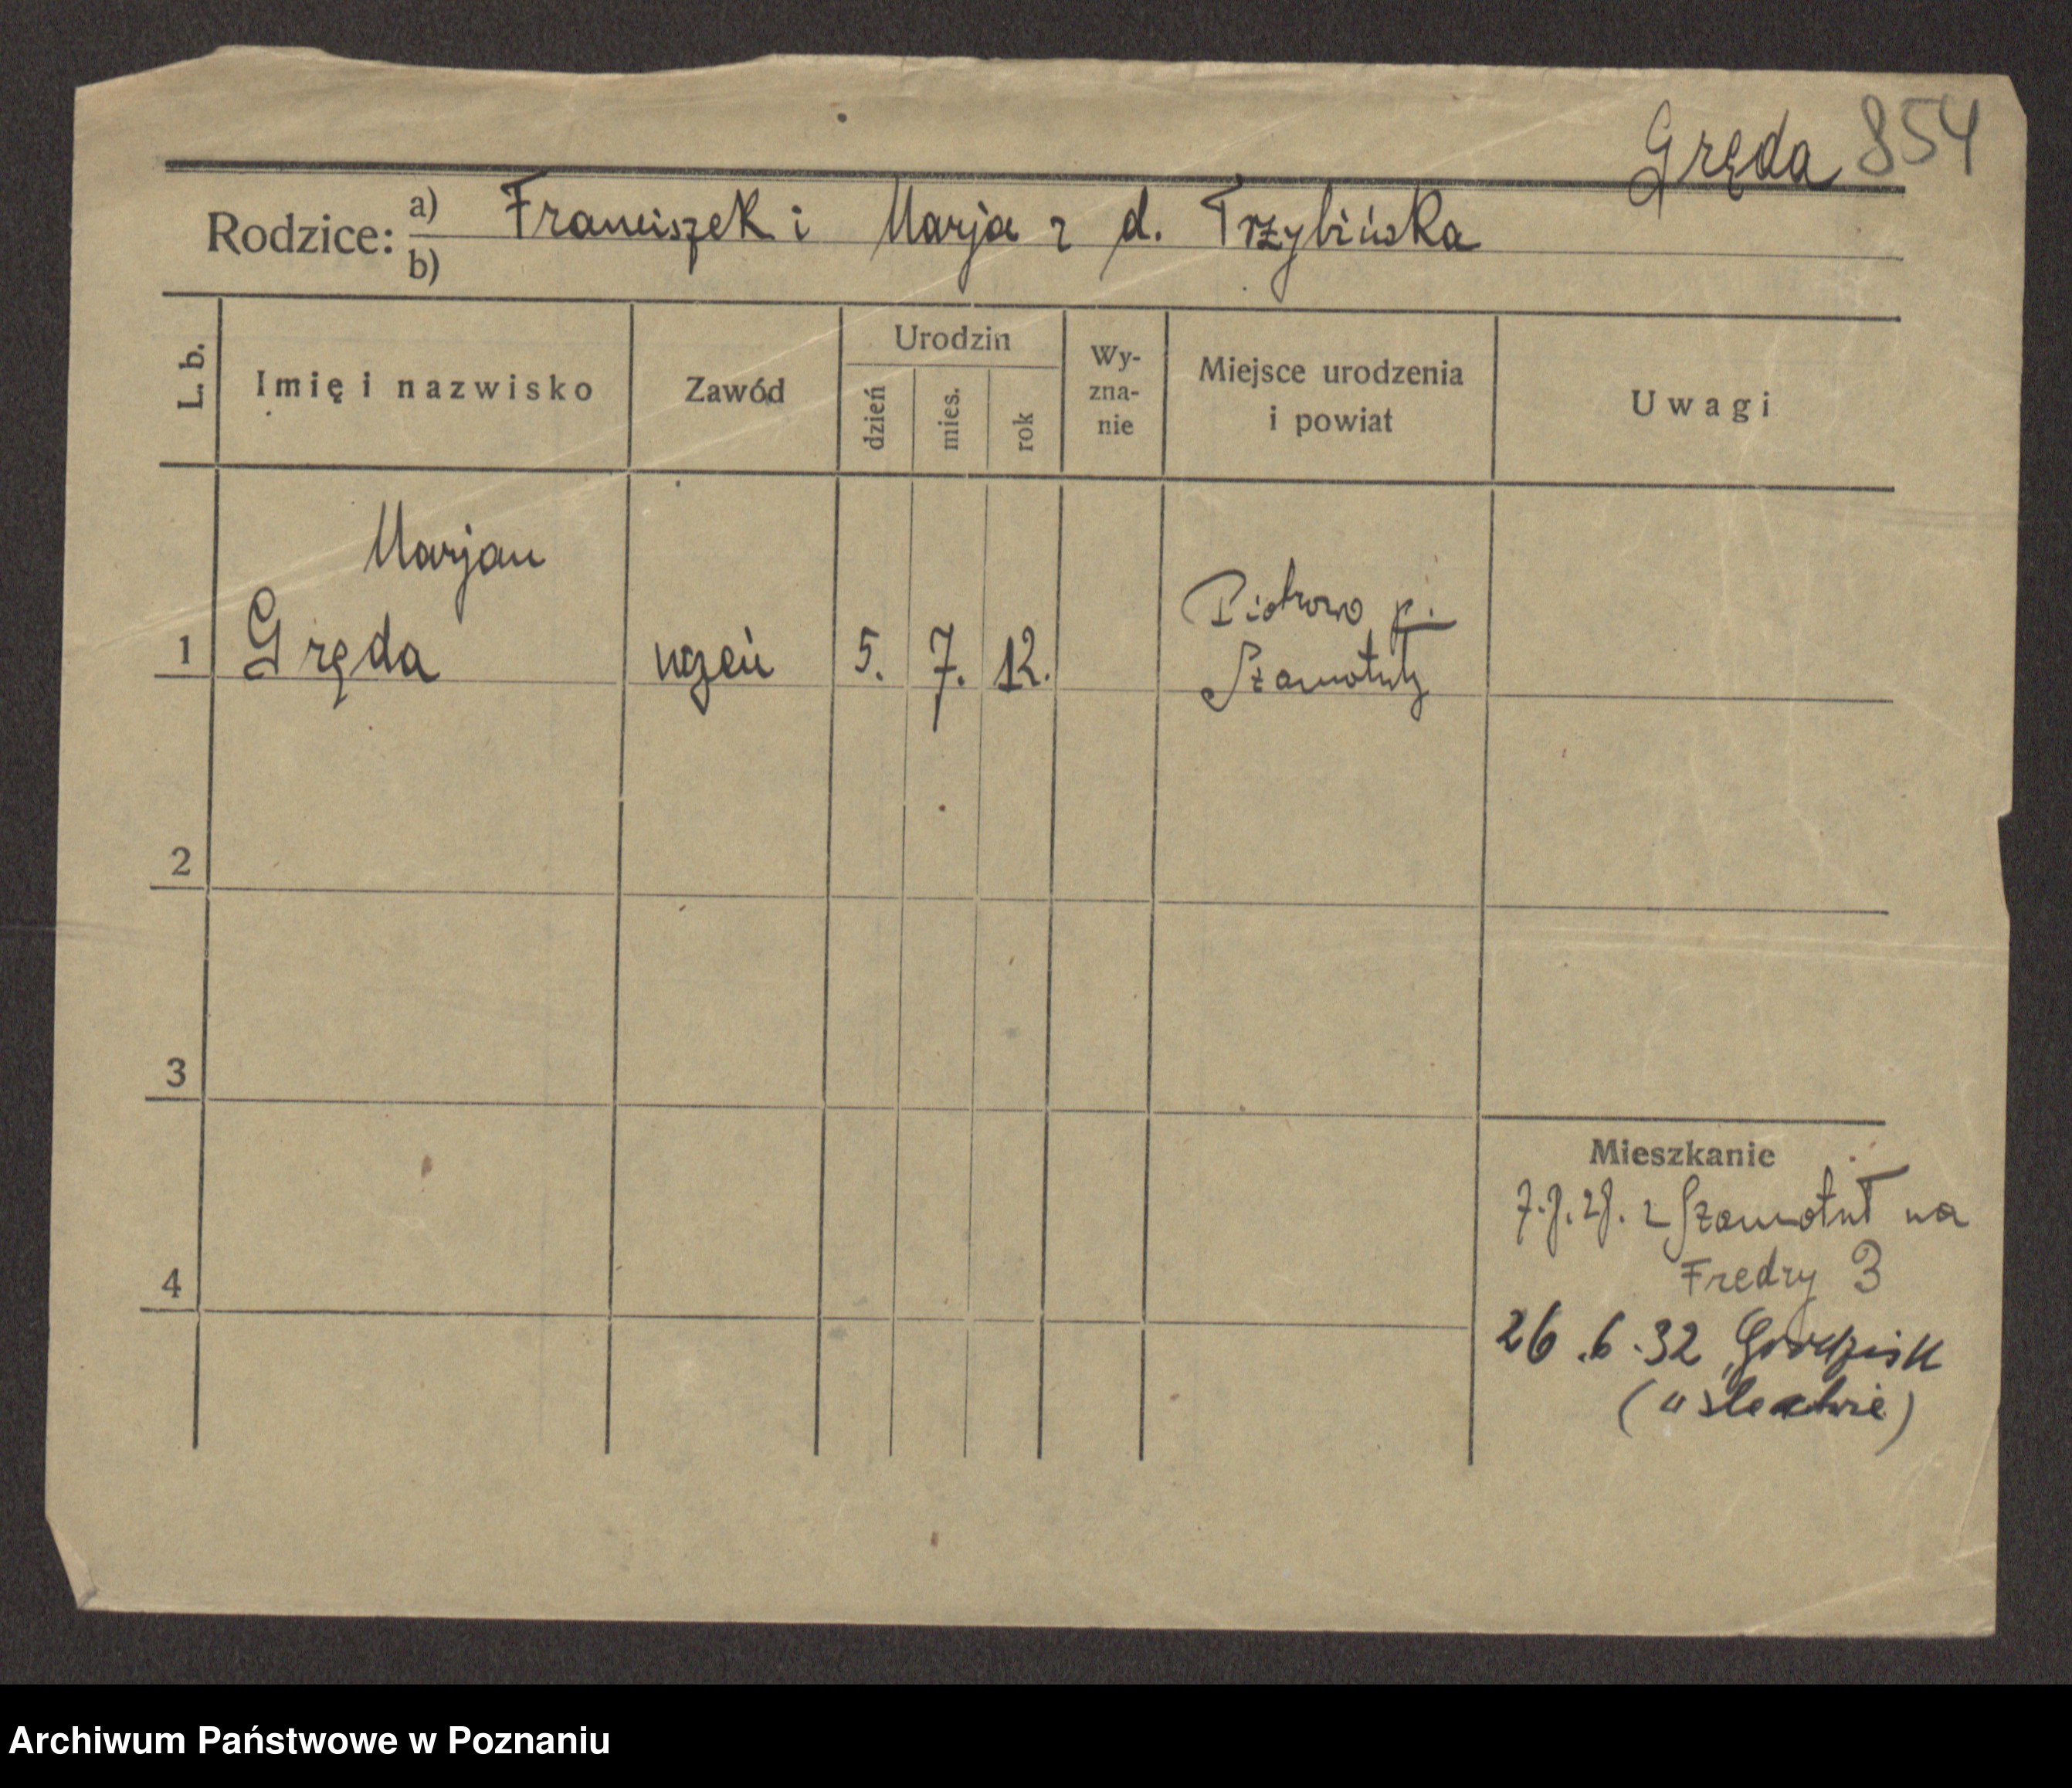 Gręda 854
Rodzice: a) Franciszek i Marja z d. Trzybińska
b)
L. b.
Imię i nazwisko
Zawód
Urodzin
dzień
mies.
rok
Wy-
zna-
nie
Miejsce urodzenia
i powiat
Uwagi
Marjan
1 Gręda uczeń 5. 7. 12. Piotrowo p.
Szamotuły
2
3
4
Mieszkanie
z Szamotuł na
Fredry 3
26.6.32 Grodzisk
Archiwum Państwowe w Poznaniu